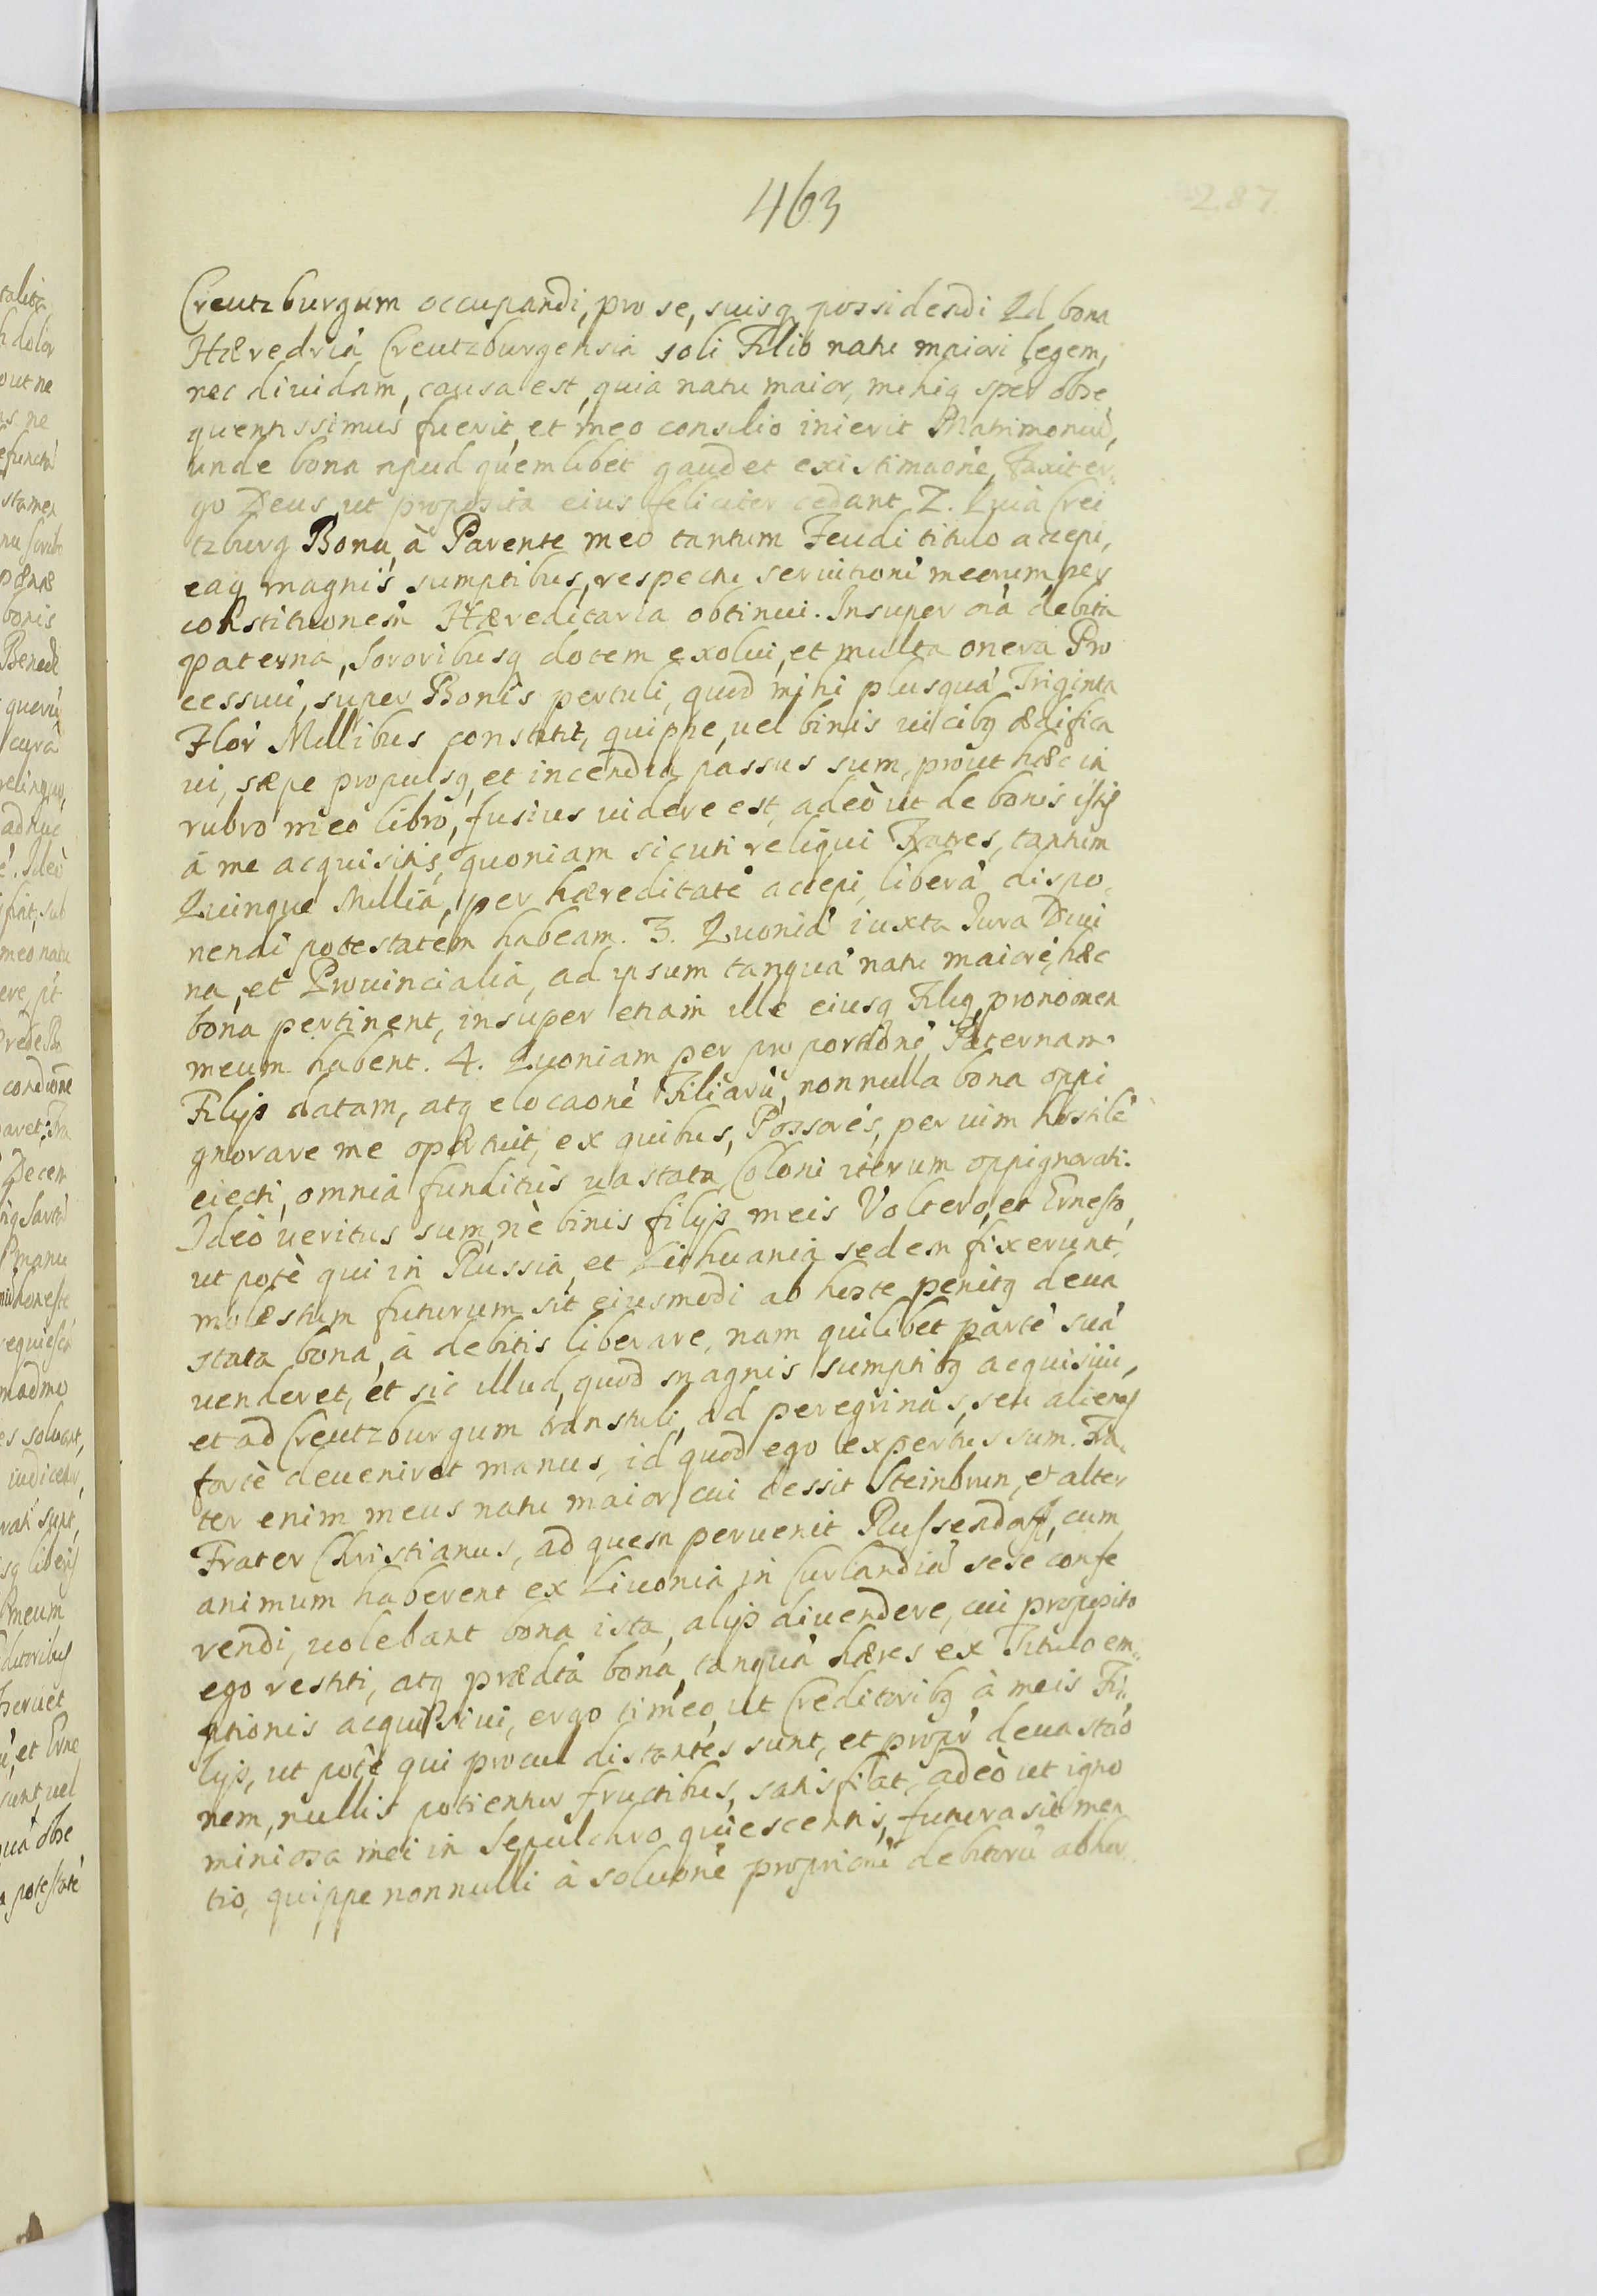 463
287
Creutzburgum occupandi, pro se, suisq possidendi Qd bona
Hæredria Creutzburgensia soli Filio natu maiori legem,
nec diuidam, causa est, quia natu maior, mihiq sper obse
quentissimus fuerit, et meo consilio inierit Matrimoniũ,
unde bona apud quemlibet gaudet existimaone, Faxit er„
go Deus, ut proposita eius feliciter cedant 2. Quia Crei
tzburg Bona, à Parente meo tantum Feudi titulo accepi,
eaq magnis sumptibus, respectu seruitioni meorum, per
constitutionem Hæreditaria obtinui. Insuper oia debita
paterna, Sororibusq dotem exolui, et multa onera Pro
cessuũ, super Bonis pertuli, quod mihi plusquã Triginta
Flor Millibus constitit, quippe, uel binis uicibq ædifica
ui, sæpe propulsq, et incendia passus sum, prout hæc in
rubro meo libro, fusius uidere est, adeò ut de bonis istis
à me acquisitis, quoniam sicuti reliqui Fratres, tantum
Quinque Millia, per hæreditatẽ accepi, liberã dispo„
nendi potestatem habeam. 3. Quoniã iuxta Jura Diui
na, et Prouincialia, ad ipsum tanquã natu maiorẽ, hæc
bona pertinent, insuper etiam ille eiusq Filiq, pronomen
meum habent. 4. Quoniam per pro portionẽ Paternam
Filijs datam, atq elocaonẽ Filiarũ, nonnulla bona oppi
gnorare me oportuit, ex quibus, Possorẽs, per uim hostilẽ
eiecti, omnia funditus uastata, Coloni iterum oppignorati.
Ideò ueritus sum, nè binis filijs meis Voltero, et Ernesto,
ut potè qui in Russia, et Lithuania sedem fixerunt,
molestum futurum sit eiusmodi ab hoste penitq deua
stata bona, à debitis liberare, nam quilibet partẽ suã
uenderet, et sic illud, quod magnis sumptibq acquisiui,
et ad Creutzburgum transtuli, ad peregrinas, seu alienas
fortè deueniret manus, id quod ego expertus sum. Fra„
ter enim meus natu maior, cui cessit Steinbrun, et alter
Frater Christianus, ad quem peruenit Russendorff, cum
animum haberent ex Liuonia in Curlandiã sese confe
rendi, uolebant bona ista, alijs diuendere, cui proposito
ego restiti, atq prædta bona, tanquã hæres ex Titulo em„
ptionis acquisiui, ergo timeo, ut Creditoribq à meis Fi„
lijs, ut potè qui procul distantes sunt, et propr deuastao
nem, nullis potientur fructibus, satisfiat, adeò ut igno
miniosa mei in Sepulchro quiescentis, futura sit men
tio, quippe nonnulli à soluonẽ propriorũ debitorũ abhor„